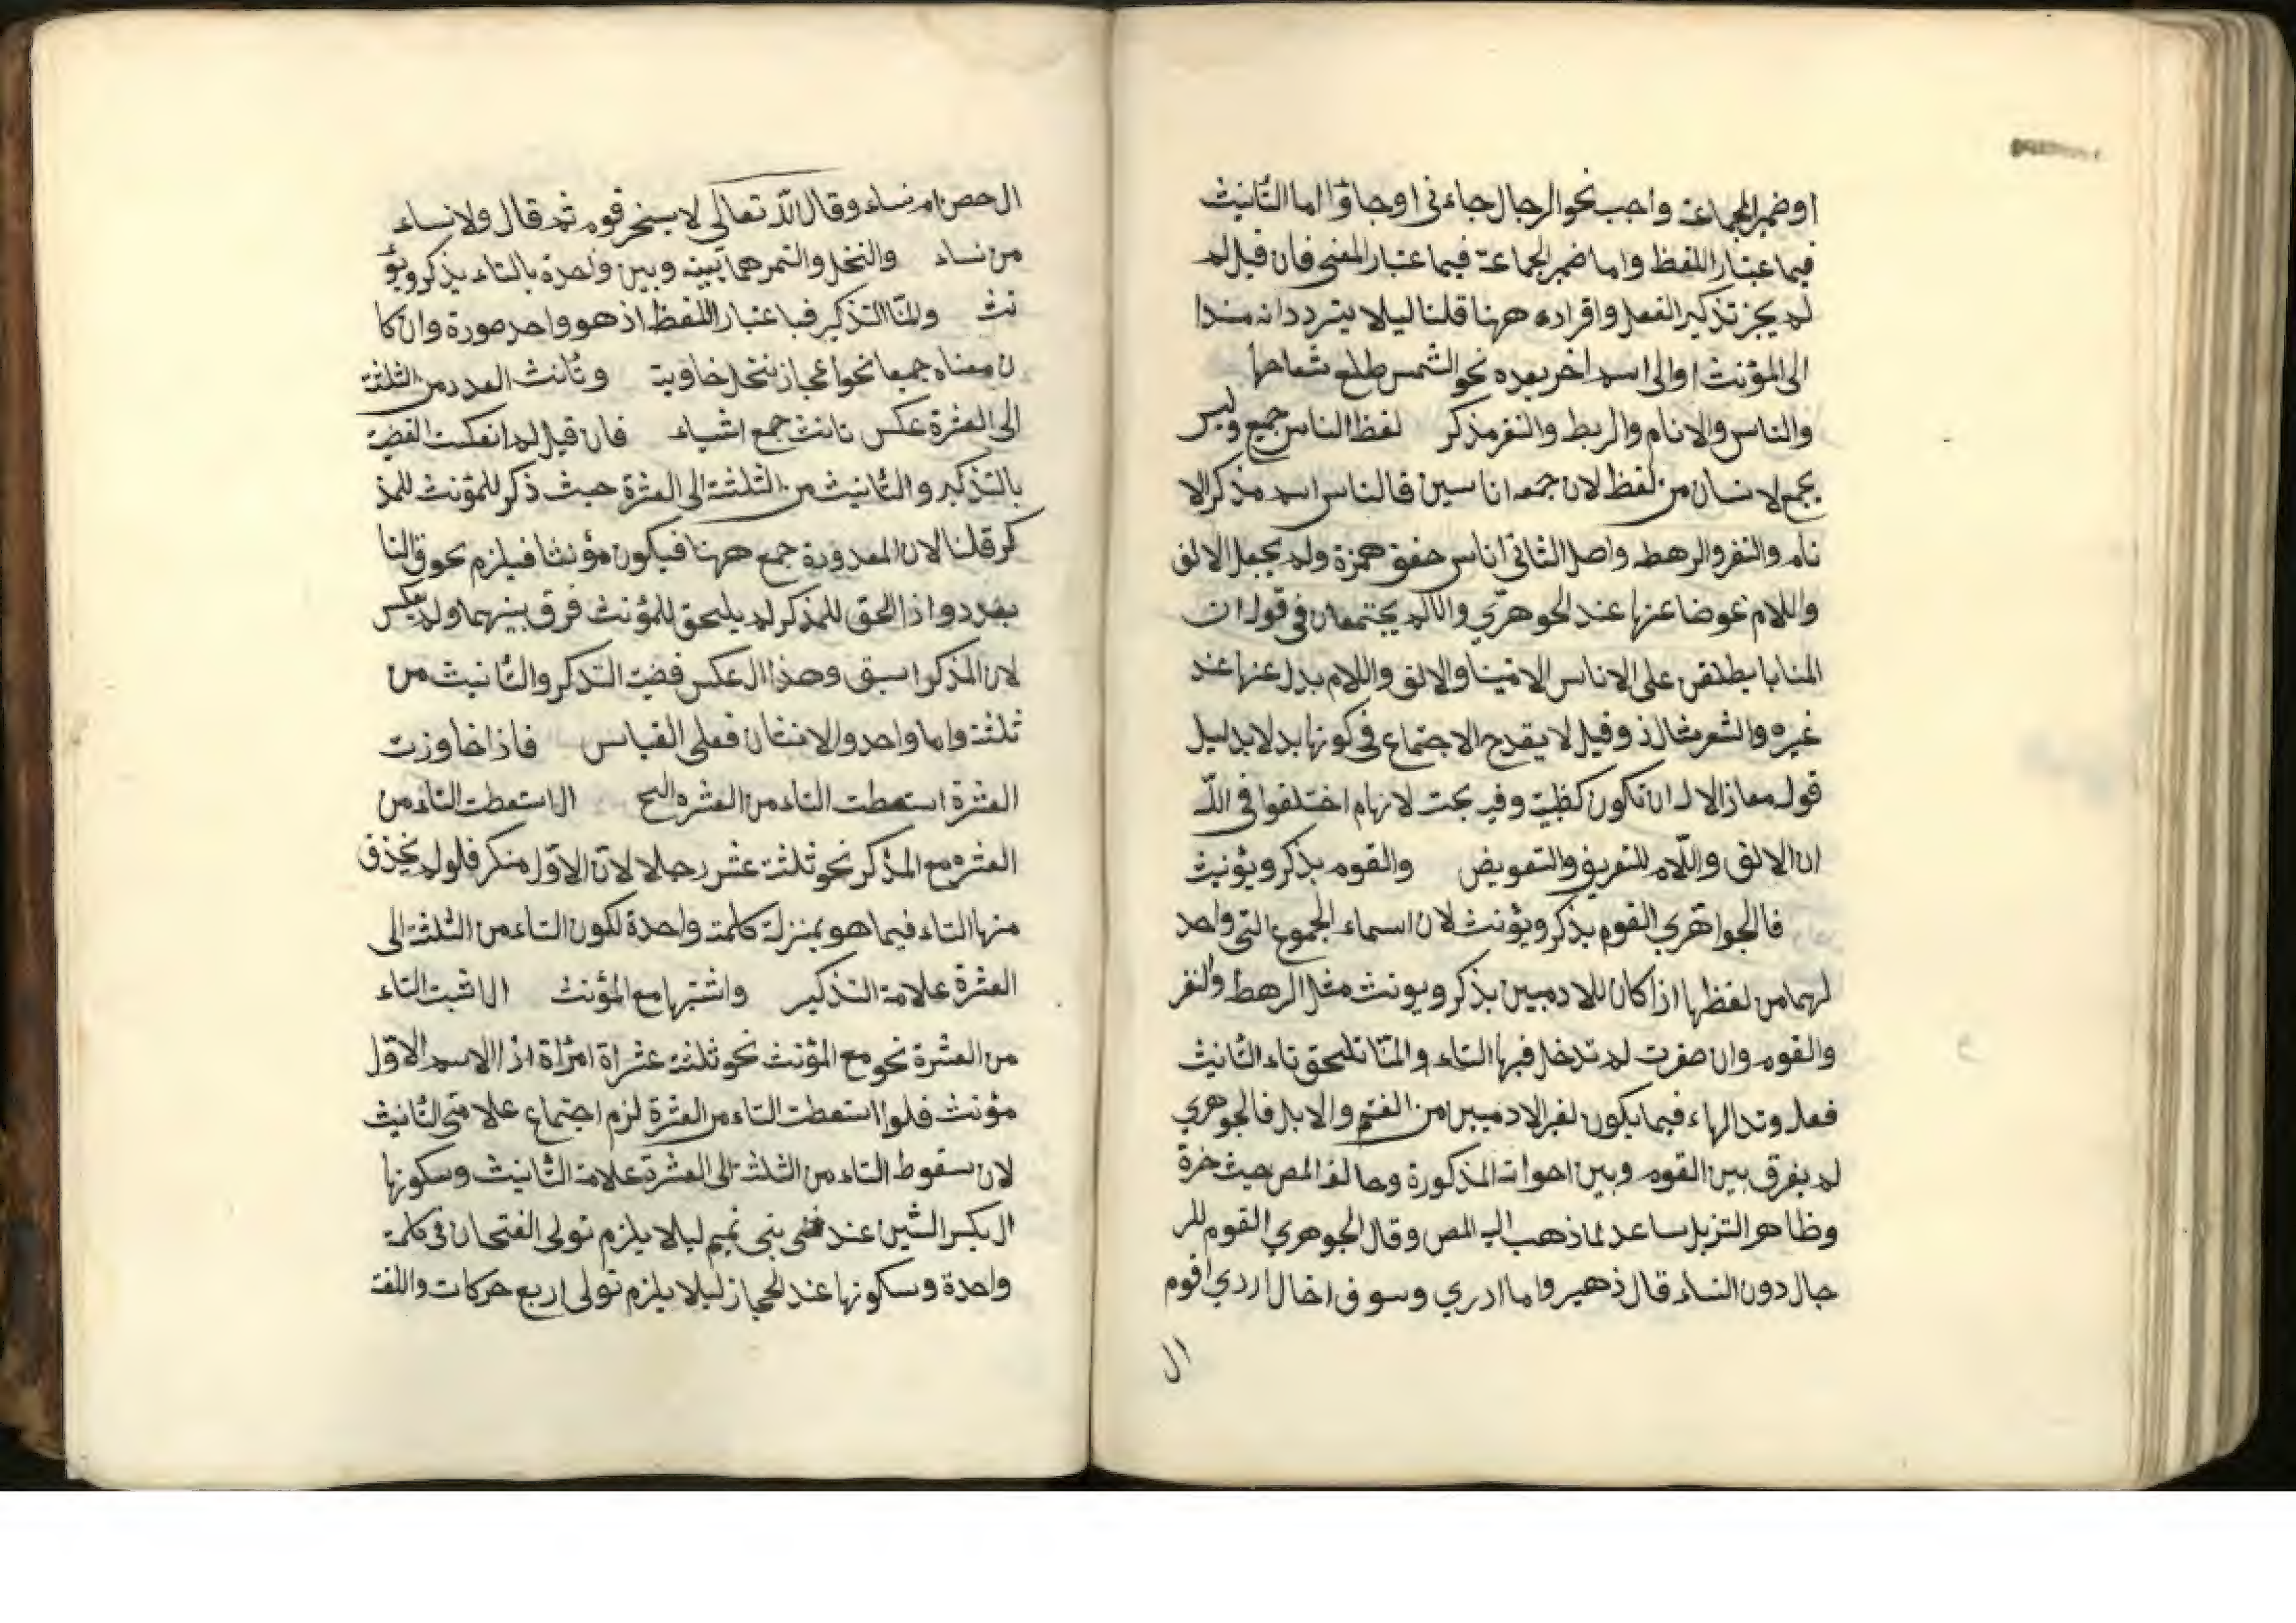 اوضمير الجماعة واجب نحو الرجال جاءنى اوجاؤا اما التأنيث
فبما عتبار اللفظ واما ضمير الجماعة فبما عتبار المعنى فان قيل لم
لم يجز تذكير الفعل واقراره ههنا قلنا ليلا يتردد انه مسندا
الى المؤنث او الى اسم اخر بعده نحو الشمس طلع شعاعها
والناس والانام والربط والنفر مذكر لفظ الناس جميع وليس
بجمع لا نسان من لفظ لان جمعه اناسين فالناس اسم مذكر الا
نام والنفر والرهط واصل الثانى اناس حفف همزة ولم يجعل الالف
واللام عوضا عنها عند الجوهرّي والا لم يجتمعان فى قوله ان
المنايا يطلقن على الاناس الامنينا والالف واللام بدل عنها عند
غيره والشعر شاذ وقيل لا يقدح الاجتماع فى كونها بدلا بدليل
قوله معاذ الاله ان تكون كظبية وفيه بحث لانهام اختلفوا فى اللّه
ان الالف واللّام للتعريف والتعويض والقوم يذكر ويؤنث
فالجواهرّي القوم يذكر ويؤنث لان اسماء الجموع التى واحد
لهما من لفظها اذا كان للادميين يذكر ويونث مثل الرهط والنفر
والقوم وان صغرت لم تدخل فيها التاء والمّا تلحق تاء التأنيث
فعله وتد الهاء فيما يكون لغير الادميين من الغنم والابل فالجوهري
لم يفرق بين القوم وبين اخواته المذكورة وخالف المص حيث خرة
وظاهر التنزيل ساعد لما ذهب اليه المص وقال الجوهري القوم للر
جال دون النساء قال ذهير واما ادري وسوف اخال اردي اقوم
ال
ال حصن ام نساء وقال الله تعالى لا يسخر قوم ثم قال ولا نساء
من نساء والنخل والتمر هما بينه وبين واحدة بالتاء يذكر ويؤ
نث ولمّا التذكير فبا عتبار اللفظ اذ هو واحد صورة وان كا
ن معناه جميعا نحو اعجاز نخل خاوية وتأنث العدد من الثلثة
الى العشرة عكس تانث جمع اشياء فان قيل لم انعكست القضية
بالتذكير والتأنيث من الثلثة الى العشرة حيث ذكر للمؤنث للمذ
كر قلنا لان المعدودة جمع ههنا فيكون مؤنثا فيلزم لحوق التا
بعدد واذا الحق للمذكر لم يلحق للمؤنث فرق بينهما ولم يعكس
لان المذكر اسبق وهذا العكس قضية التذكر والتأنيث من
ثلثة واما واحد والاثنان فعلى القياس فاذا خاوزت
العشرة استعطت التاء من العشره الخ ال استعطت التاء من
العشره مع المذكر نحو ثلثة عشر رجلا لانّ الاوّل منكر فلو لم يحذف
منها التاء فيما هو بمنزلة كلمة واحدة لكون التاء من الثلثة الى
العشرة علامة التذكير واشتبها مع المؤنث ال اثبت التاء
من العشرة نحو مع المؤنث نحو ثلثة عشراة امرأة اذ الاسم الاوّل
مؤنث فلوا استعطت التاء من العشرة لزم اجتماع علامتى التأنيث
لان سقوط التاء من الثلثة الى العشرة علامة التأنيث وسكونها
ال بكسر الشين عند بنى تميم ليلا يلزم تولى الفتحان فى كلمة
واحدة وسكونها عند الحجاز ليلا يلزم تولى اربع حركات واللغة